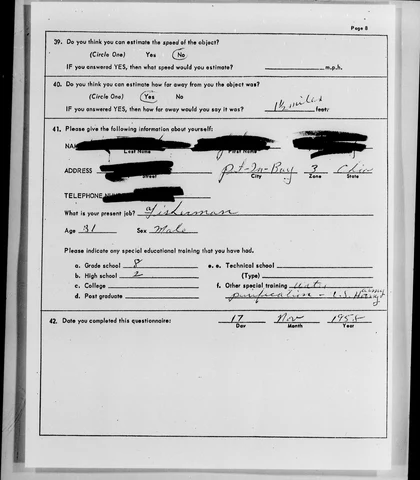 Page 8
39. Do you think you can estimate the speed of the object?
(Circle One) Yes No
IF you answered YES, then what speed would you estimate? m.p.h.
40. Do you think you can estimate how far away from you the object was?
(Circle One) Yes No
IF you answered YES, then how far away would you say it was? 1½ miles feet
41. Please give the following information about yourself:
NA
Last Name First Name
ADDRESS Put-In-Bay 3 Ohio
Street City Zone State
TELEPHONE
What is your present job? Fisherman
Age 31 Sex Male
Please indicate any special educational training that you have had.
a. Grade school 8 e. e. Technical school
b. High school 2 (Type)
c. College f. Other special training water
d. Post graduate purification - U.S.
42. Date you completed this questionnaire: 17 Nov 1958
Day Month Year